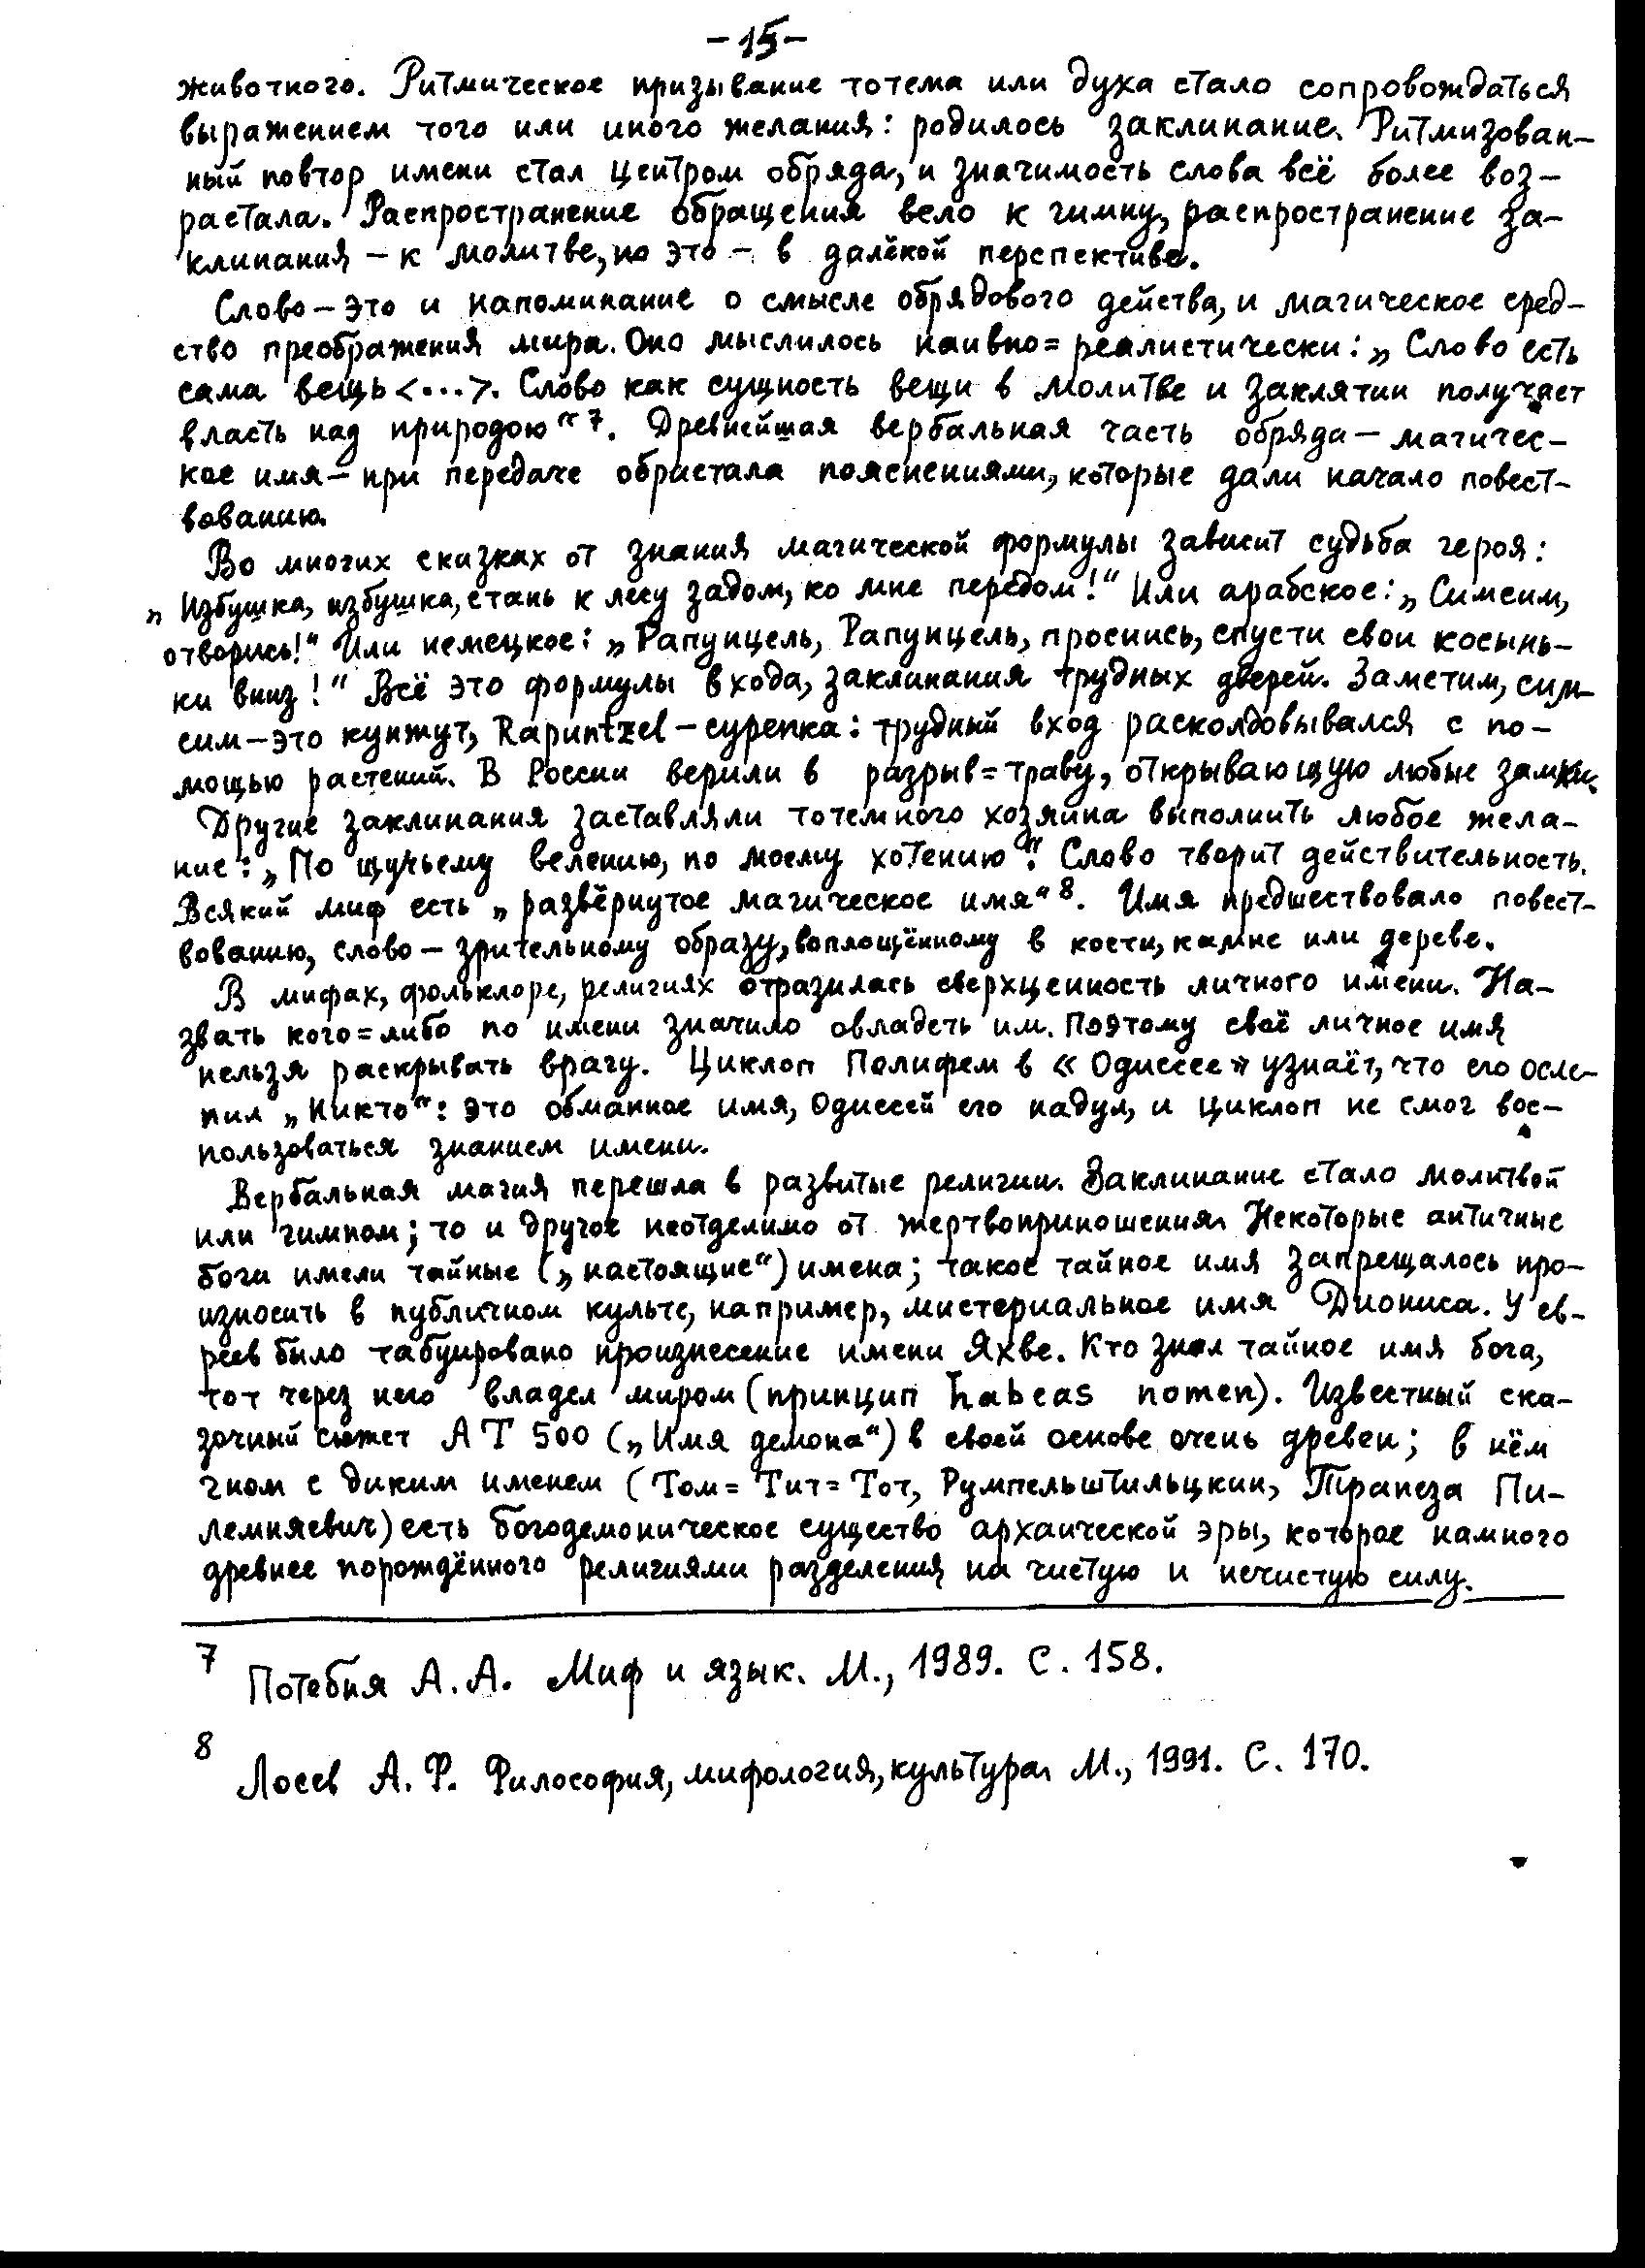 -15-
животного. Ритмическое призывание тотема или духа стало сопровождаться
выражением того или иного желания: родилось заклинание. Ритмизован-
ный повтор имени стал центром обряда, и значимость слова всё более воз-
растала. Распространение обращения вело к гимну, распространение за-
клинания – к молитве, но это – в далёкой перспективе.
Слово – это и напоминание о смысле обрядового действа, и магическое сред-
ство преображения мира. Оно мыслилось наивно=реалистически: „Слово есть
сама вещь <...>. Слово как сущность вещи в молитве и заклятии получает
власть над природою“ 7. Древнейшая вербальная часть обряда – магичес-
кое имя – при передаче обрастала пояснениями, которые дали начало повест-
вованию.
Во многих сказках от знания магической формулы зависит судьба героя:
„Избушка, избушка, стань к лесу задом, ко мне передом!“ Или арабское: „Симсим,
отворись!“ Или немецкое: „Рапунцель, Рапунцель, проснись, спусти свои косынь-
ки вниз!“ Всё это формулы входа, заклинания трудных дверей. Заметим, сим-
сим – это кунжут, Rapuntzel – сурепка: трудный вход расколдовывался с по-
мощью растений. В России верили в разрыв=траву, открывающую любые замки.
Другие заклинания заставляли тотемного хозяина выполнить любое жела-
ние: „По щучьему велению, по моему хотению“. Слово творит действительность.
Всякий миф есть „развёрнутое магическое имя“ 8. Имя предшествовало повест-
вованию, слово – зрительному образу, воплощённому в кости, камне или дереве.
В мифах, фольклоре, религиях отразилась сверхценность личного имени. На-
звать кого=либо по имени значило овладеть им. Поэтому своё личное имя
нельзя раскрывать врагу. Циклоп Полифем в «Одиссее» узнаёт, что его осле-
пил „Никто“: это обманное имя, Одиссей его надул, и циклоп не смог вос-
пользоваться знанием имени.
Вербальная магия перешла в развитые религии. Заклинание стало молитвой
или гимном; то и другое неотделимо от жертвоприношения. Некоторые античные
боги имели тайные („настоящие“) имена; такое тайное имя запрещалось про-
износить в публичном культе, например, мистериальное имя Диониса. У ев-
реев было табуировано произнесение имени Яхве. Кто знал тайное имя бога,
тот через него владел миром (принцип habeas nomen). Известный ска-
зочный сюжет АТ 500 („Имя демона“) в своей основе очень древен; в нём
гном с диким именем (Том=Тит=Тот, Румпельштильцкин, Трапеза Пи-
лемняевич) есть богодемоническое существо архаической эры, которое намного
древнее порождённого религиями разделения на чистую и нечистую силу.
7 Потебня А.А. Миф и язык. М., 1989. С. 158.
8 Лосев А.Ф. Философия, мифология, культура. М., 1991. С. 170.